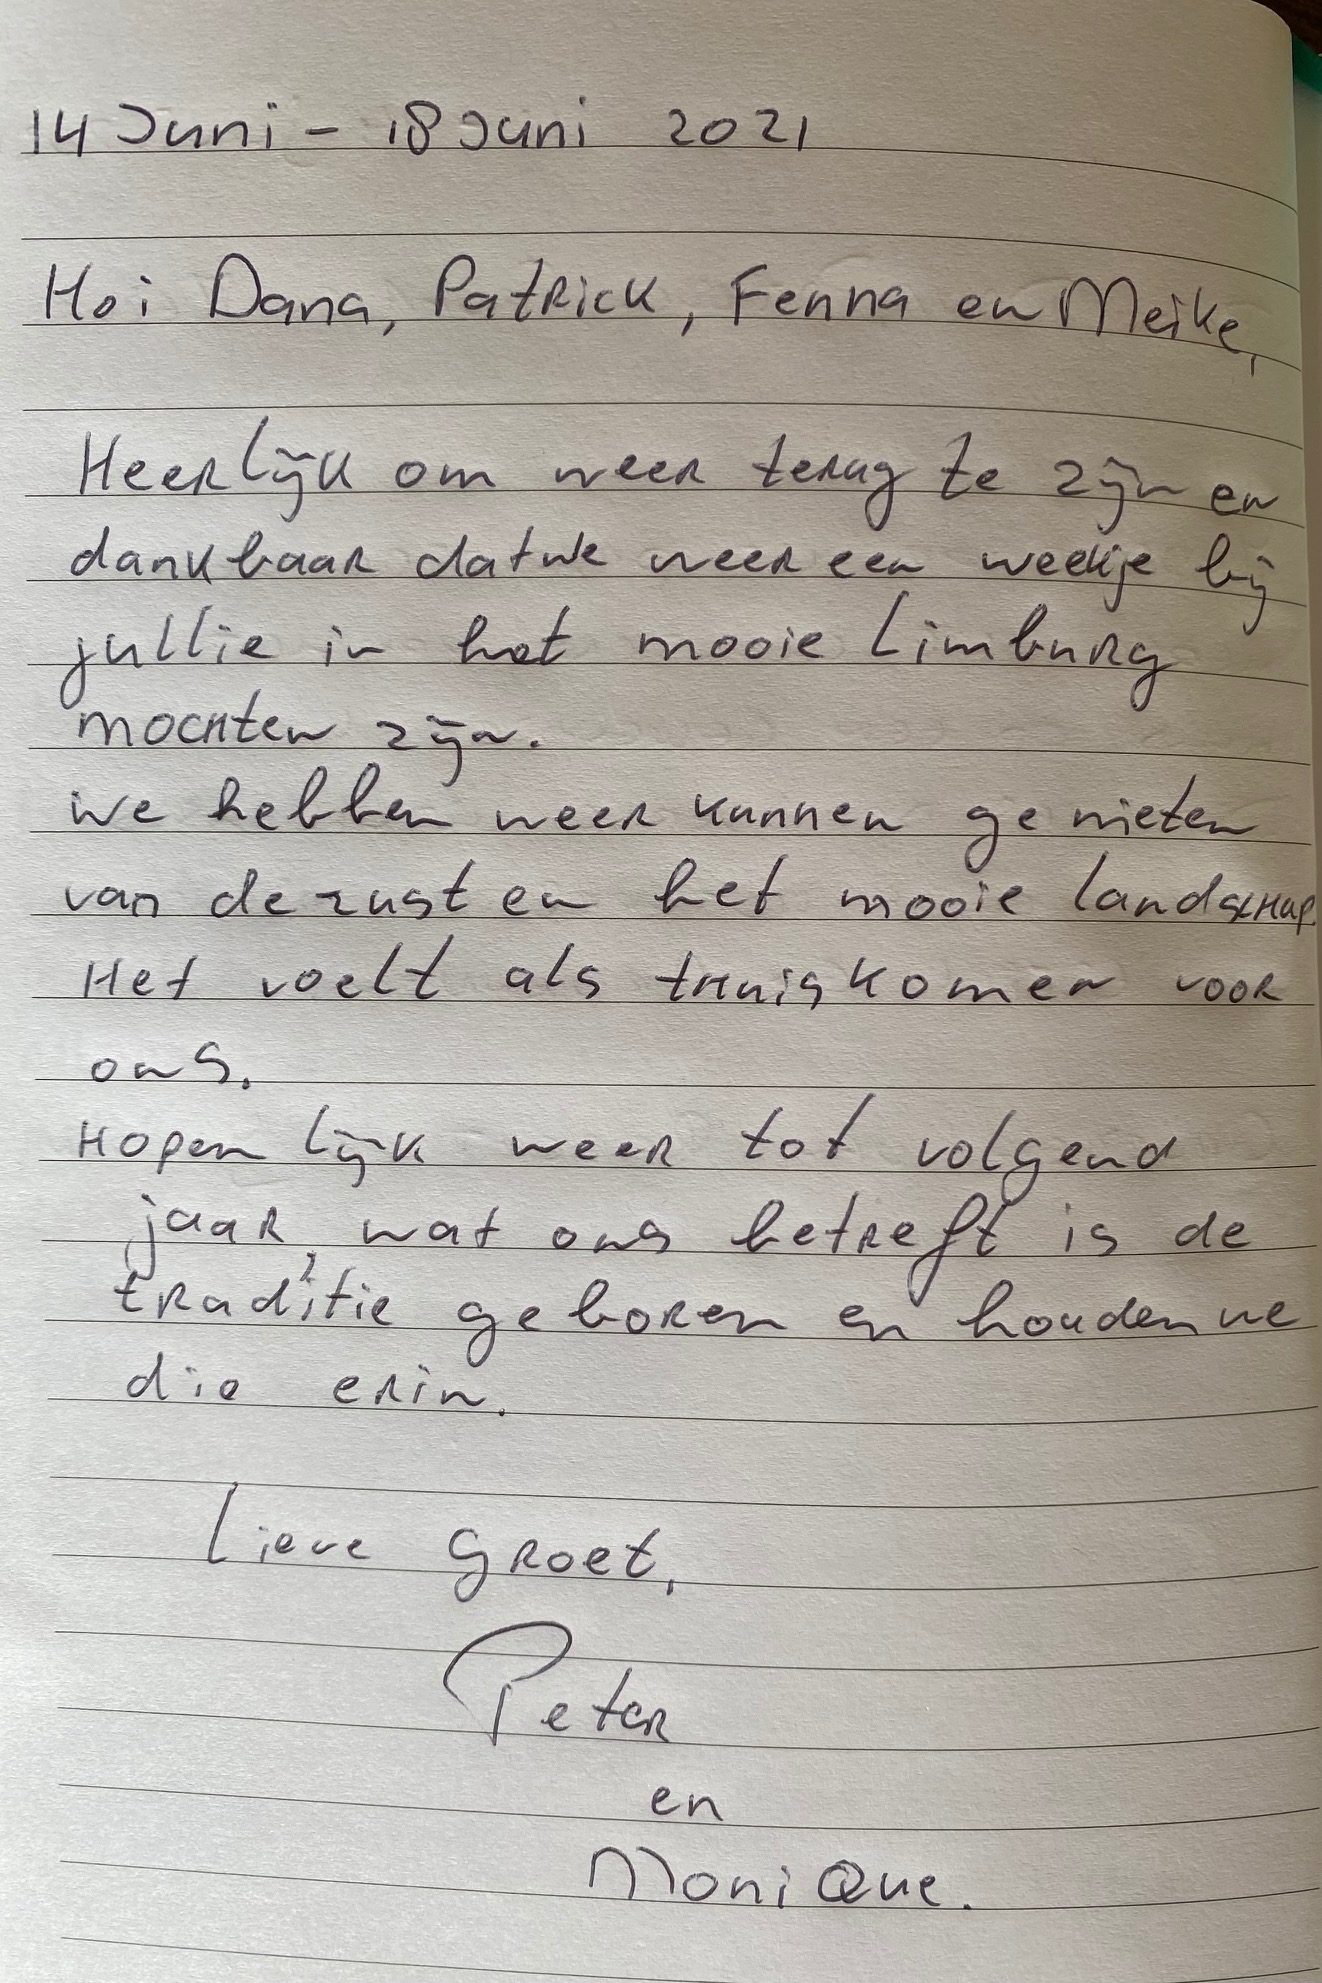 14 Juni - 18 Juni 2021
Hoi Dana, Patrick, Fenna en Meike,
Heerlijk om weer terug te zijn en
dankbaar dat we weer een weekje bij
jullie in het mooie Limburg
mochten zijn.
We hebben weer kunnen genieten
van de rust en het mooie landschap.
Het voelt als thuiskomen voor
ons.
Hopenlijk weer tot volgend
jaar, wat ons betreft is de
traditie geboren en houden we
die erin.
Lieve groet,
Peter
en
Monique.